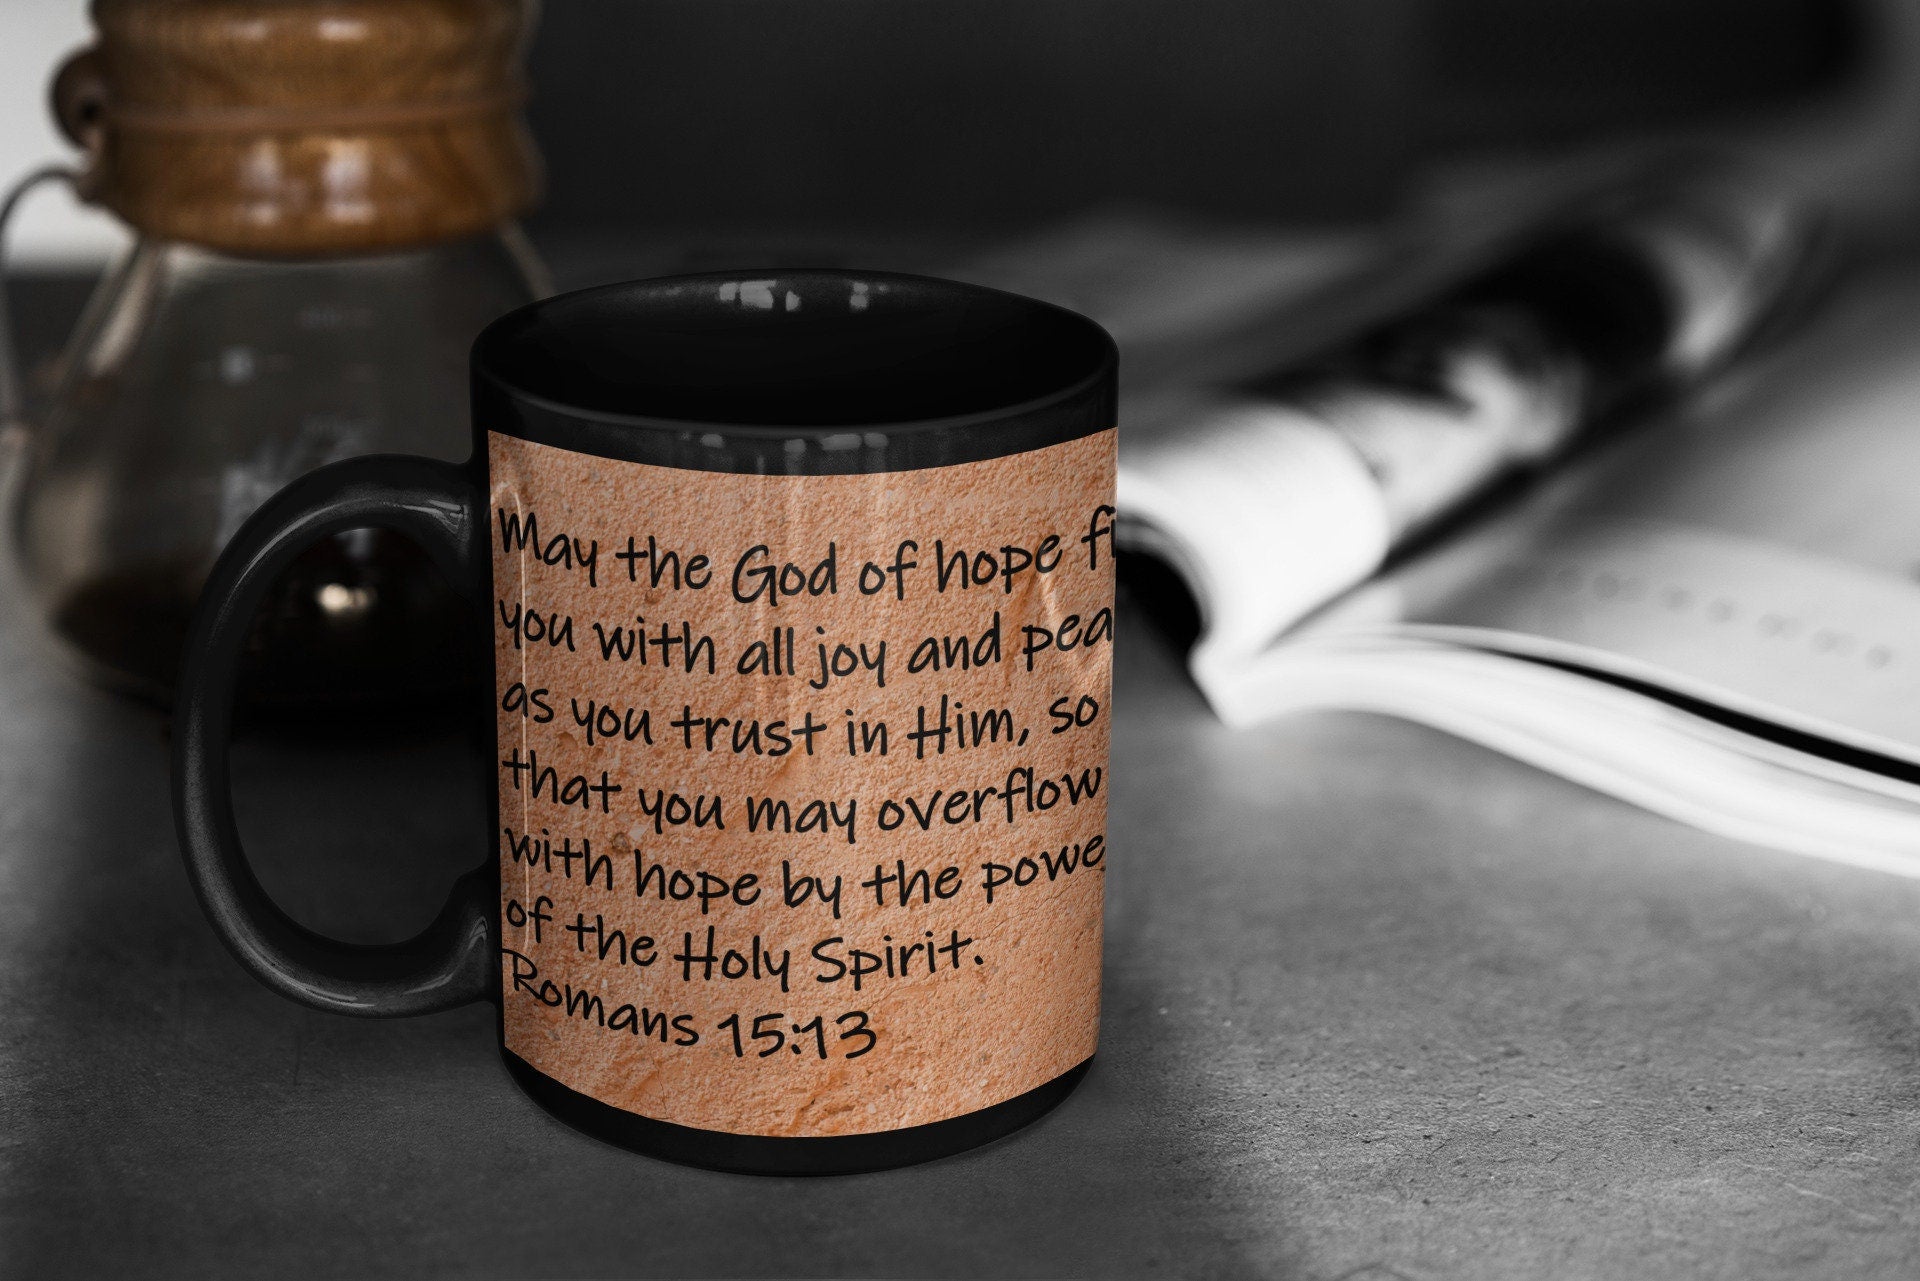 May the God of hope fi
you with all joy and pea
as you trust in Him, so
that you may overflow
with hope by the powe
of the Holy Spirit.
Romans 15:13